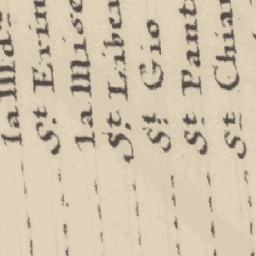 la Mad
St Erm
la Mise
St Liber
St Gio
St Pant
St Chiar